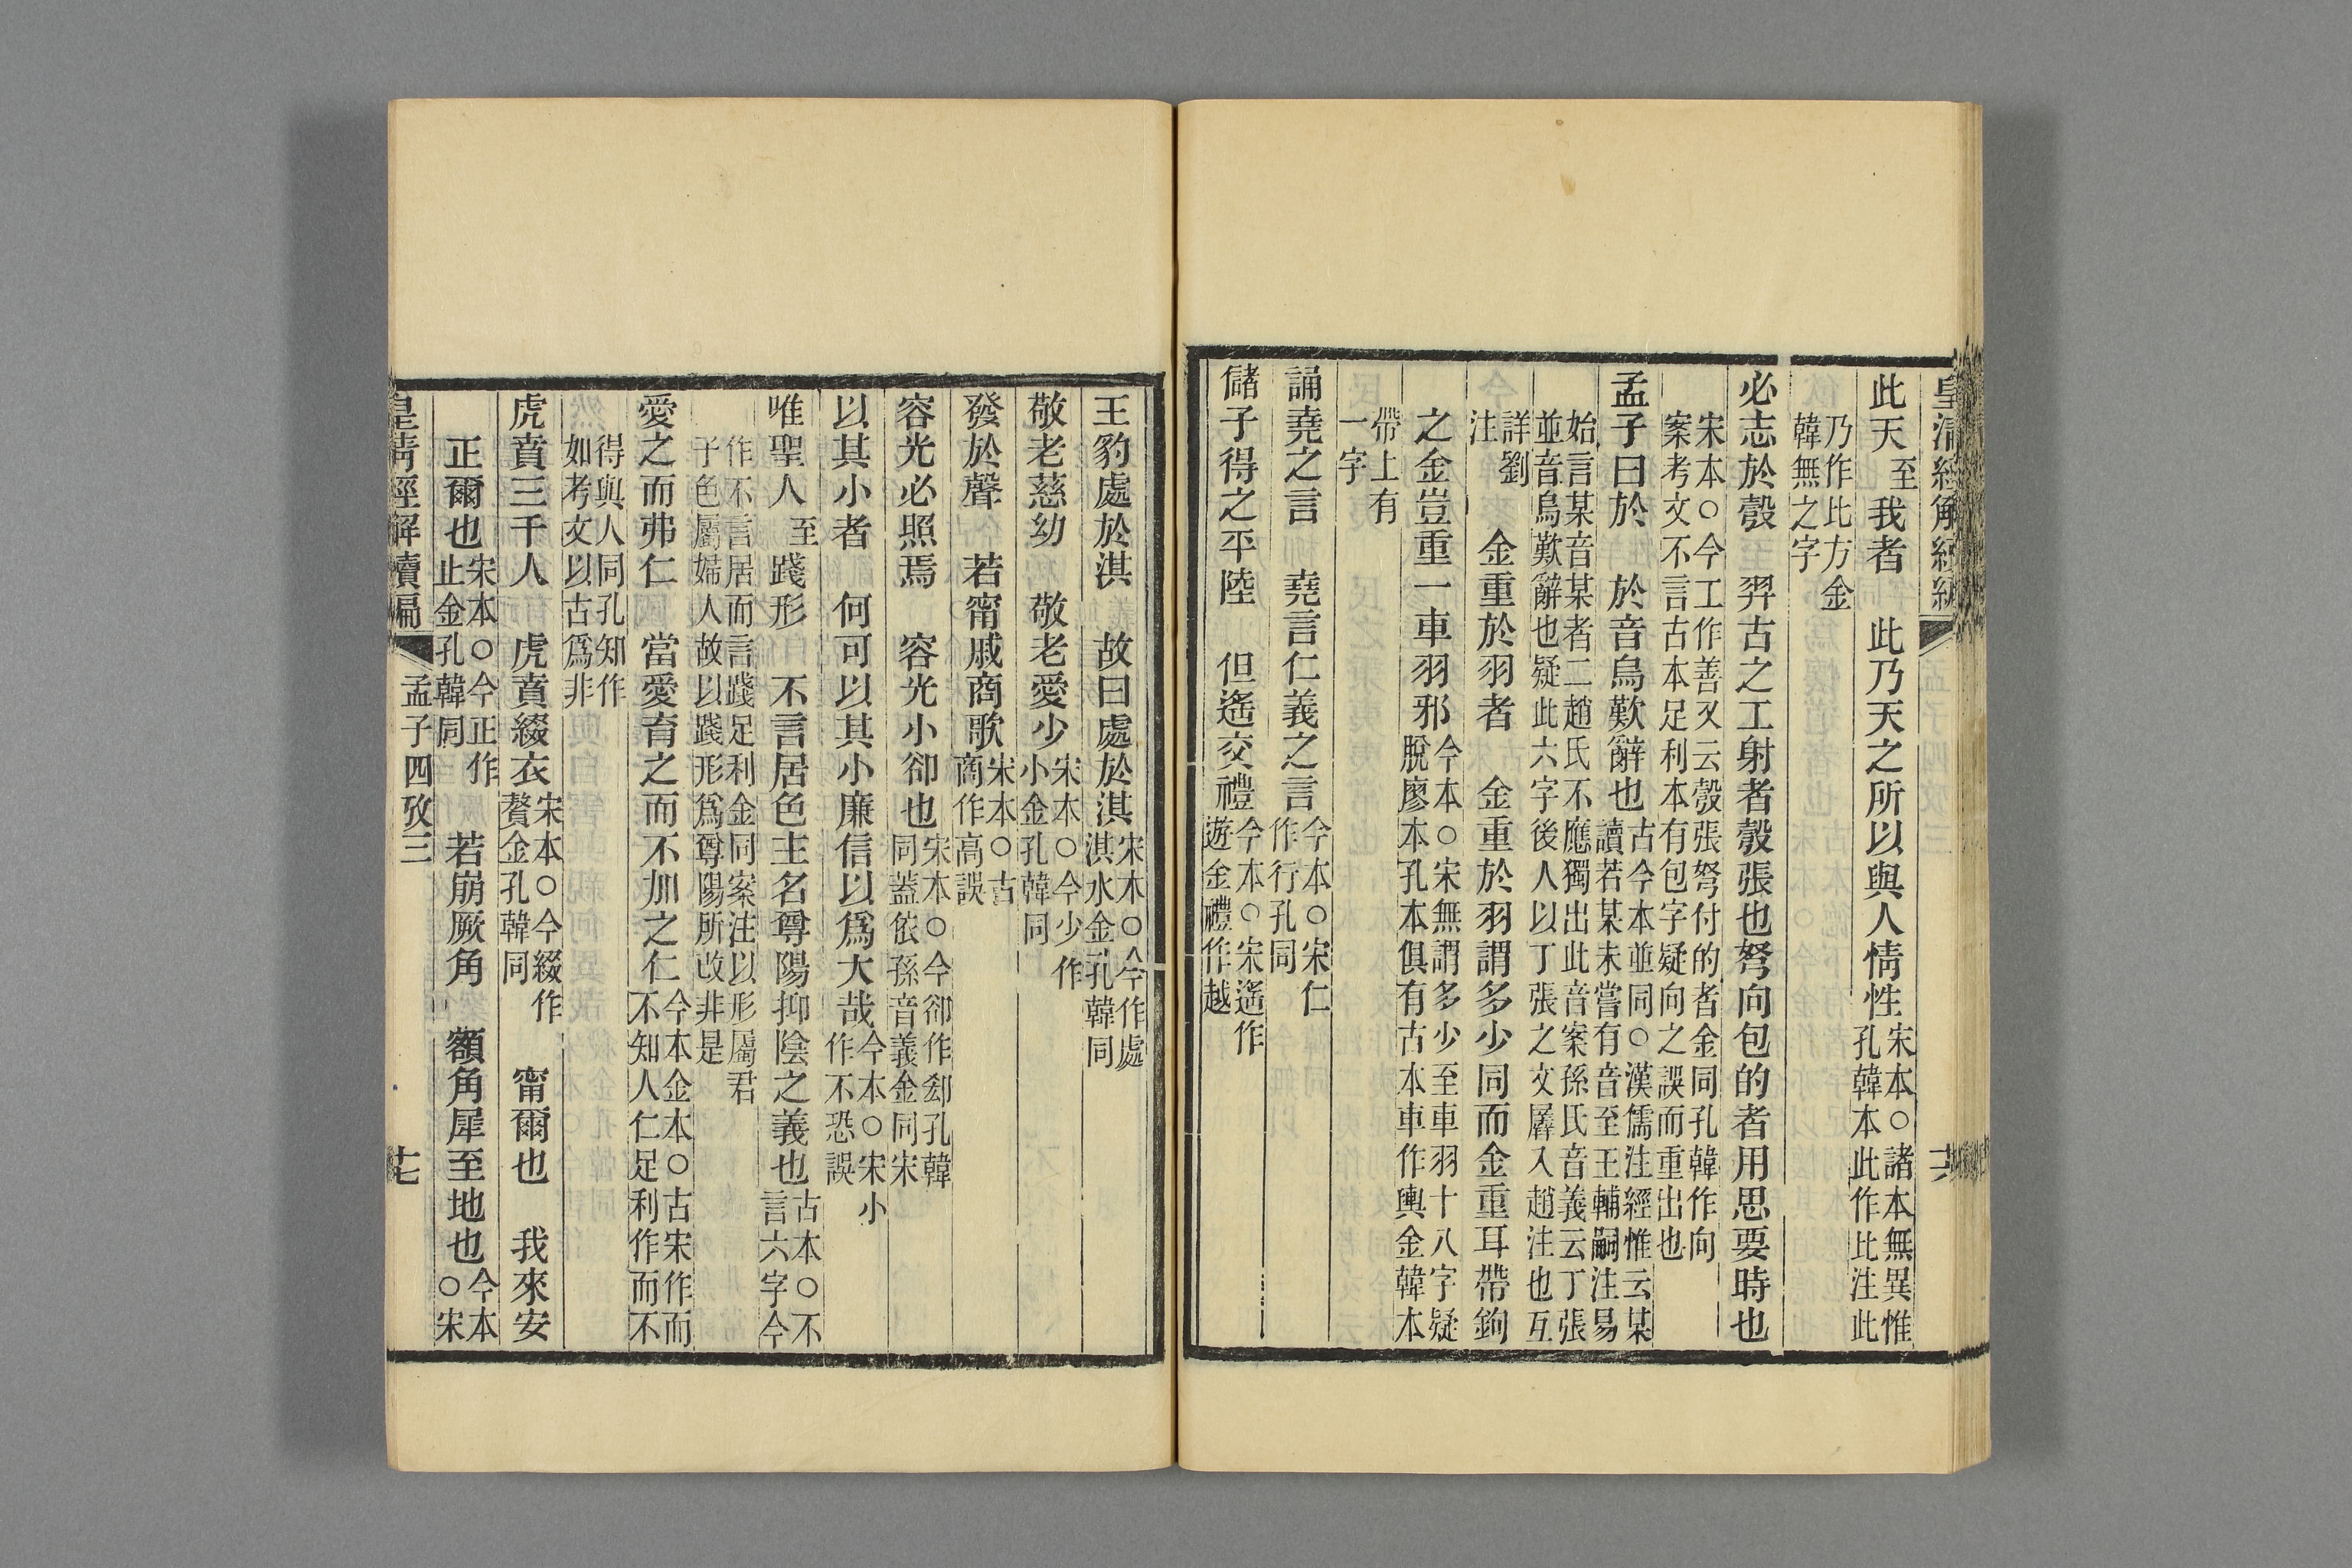 皇清經解續編
此天至我者　此乃天之所以與人情性宋本○諸本無異惟孔韓本此作比注此
乃作比方金韓無之字
必志於彀　羿古之工射者彀張也弩向包的者用思要時也
宋本○今工作善又云彀張弩付的者金同孔韓作向案考文不言古本足利本有包字疑向之誤而重出也
孟子曰於　於音烏歎辭也古今本並同○漢儒注經惟云某讀若某未嘗有音至王輔嗣注易
始言某音某者二趙氏不應獨出此音案孫氏音義云丁張並音烏歎辭也疑此六字後人以丁張之文羼入趙注也互
詳劉注　金重於羽者　金重於羽謂多少同而金重耳帶鉤
之金豈重一車羽邪今本○宋無謂多少至車羽十八字疑脫廖本孔本俱有古本車作輿金韓本
帶上有一字
誦堯之言　堯言仁義之言今本○宋仁作行孔同
儲子得之平陸　但遙交禮今本○宋遙作遊金禮作越
王豹處於淇　故曰處於淇宋本○今作處淇水金孔韓同
敬老慈幼　敬老愛少宋本○今少作小金孔韓同
發於聲　若甯戚商歌宋本○古商作高誤
容光必照焉　容光小卻也宋本○今卻作郄孔韓同蓋依孫音義金同宋
以其小者　何可以其小廉信以爲大哉今本○宋小作不恐誤
唯聖人至踐形　不言居色主名尊陽抑陰之義也古本○不言六字今
作不言居而言踐足利金同案注以形屬君子色屬婦人故以踐形爲尊陽所改非是
愛之而弗仁　當愛育之而不加之仁今本金本○古宋作而不知人仁足利作而不
得與人同孔知作如考文以古爲非
虎賁三千人　虎賁綴衣宋本○今綴作贅金孔韓同　甯爾也　我來安
正爾也宋本○今正作止金孔韓同　若崩厥角　額角犀至地也今本○宋
皇清經解續編　孟子四攷三　十七